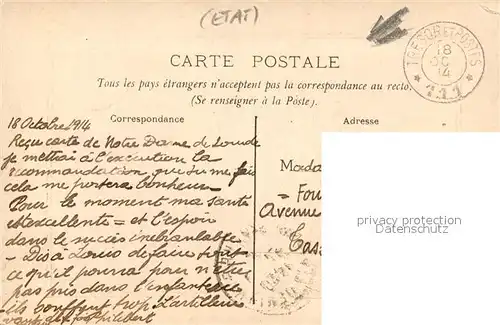 (ETAT)
TRESOR ET POSTES
18
OC
14
* 111 *
CARTE POSTALE
Tous les pays étrangers n'acceptent pas la correspondance au recto.
(Se renseigner à la Poste).
Correspondance
Adresse
18 Octobre 1914
Reçu carte de Notre Dame de
je mettrai à l'execution la
recommandation, que tu me fais
cela me portera bonheur
Pour le moment ma santé
est excellente = et l'espoir
dans le succès inebranlable
- Dis à Louis de faire tout
ce qu'il pourra pour n'être
pas pris dans l'infanterie
ils trop. L'artillerie
Philibert
Mada
=
Avenue
privacy protection
watermark